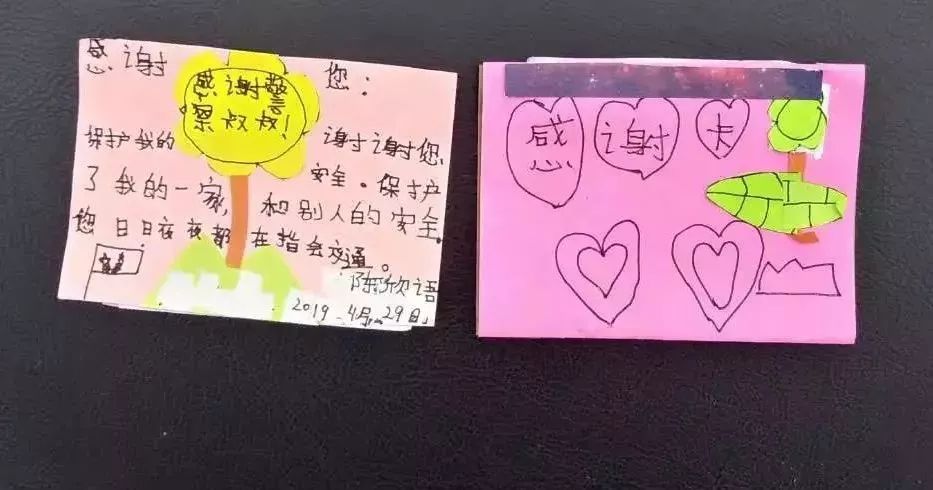 感谢 您：
感谢警
察叔叔！
保护我的 谢谢您
安全。保护
了我的一家，和别人的安全。
您日日夜夜都在指会交通。
陈欣语
2019.4月29日
感谢卡